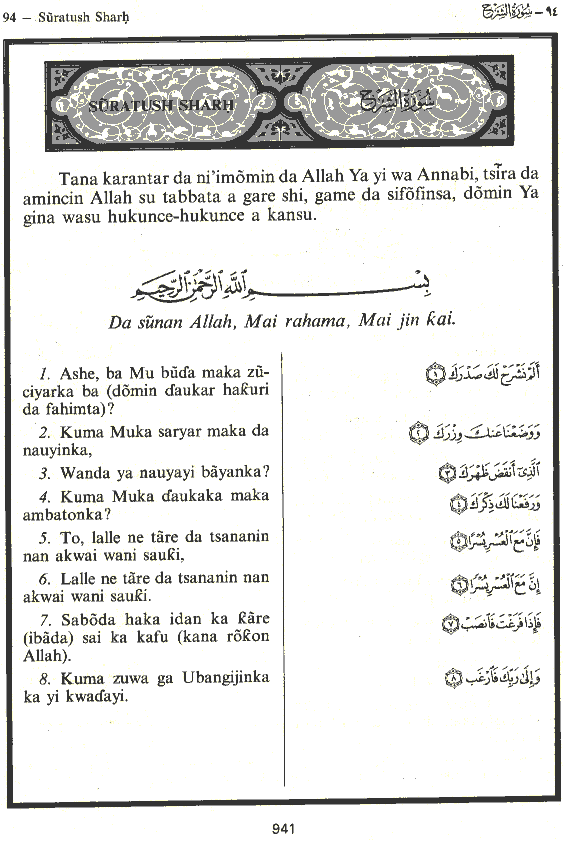 94 — Sũratush Sharḥ
٩٤ - سُورَةُ الشَّرْحِ
SŨRATUSH SHARH
سُورَةُ الشَّرْحِ
Tana karantar da ni'imõmin da Allah Ya yi wa Annabi, tsĩra da
amincin Allah su tabbata a gare shi, game da sifõfinsa, dõmin Ya
gina wasu hukunce-hukunce a kansu.
بِسْمِ اللَّهِ الرَّحْمَٰنِ الرَّحِيمِ
Da sũnan Allah, Mai rahama, Mai jin ƙai.
1. Ashe, ba Mu bũɗa maka zũ-
ciyarka ba (dõmin ɗaukar haƙuri
da fahimta)?
2. Kuma Muka saryar maka da
nauyinka,
3. Wanda ya nauyayi bãyanka?
4. Kuma Muka ɗaukaka maka
ambatonka?
5. To, lalle ne tãre da tsananin
nan akwai wani sauƙi,
6. Lalle ne tãre da tsananin nan
akwai wani sauƙi.
7. Sabõda haka idan ka ƙãre
(ibãda) sai ka kafu (kana rõƙon
Allah).
8. Kuma zuwa ga Ubangijinka
ka yi kwaɗayi.
أَلَمْ نَشْرَحْ لَكَ صَدْرَكَ ١
وَوَضَعْنَا عَنكَ وِزْرَكَ ٢
الَّذِي أَنقَضَ ظَهْرَكَ ٣
وَرَفَعْنَا لَكَ ذِكْرَكَ ٤
فَإِنَّ مَعَ الْعُسْرِ يُسْرًا ٥
إِنَّ مَعَ الْعُسْرِ يُسْرًا ٦
فَإِذَا فَرَغْتَ فَانصَبْ ٧
وَإِلَىٰ رَبِّكَ فَارْغَب ٨
941